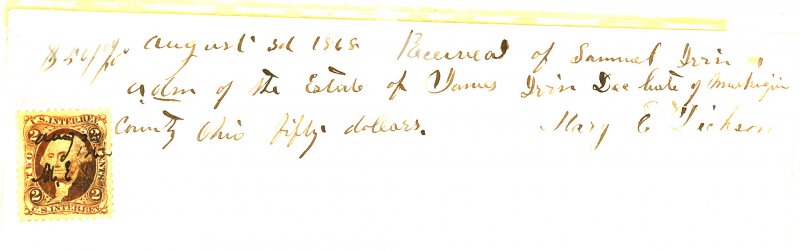 $50/00 August 3d 1868 Received of Samuel Irvin
adm of the Estate of James Irvin Dec late of Muskingum
County Ohio fifty dollars. Mary E Dickson
U.S. INTER. REV.
TWO CENTS
2 2
Aug
M. E.
2 2
U.S. INTER. REV.